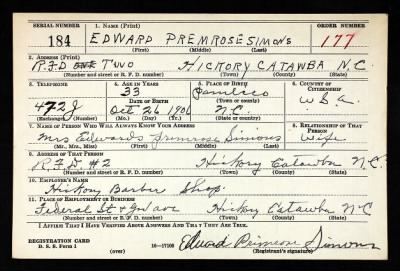 SERIAL NUMBER 1. NAME (Print) ORDER NUMBER
184 EDWARD PREMROSE SIMONS 177
(First) (Middle) (Last)
2. ADDRESS (Print)
R.F.D TWO HICKORY CATAWBA N.C.
(Number and street or R. F. D. number) (Town) (County) (State)
3. TELEPHONE 4. AGE IN YEARS 5. PLACE OF BIRTH 6. COUNTRY OF CITIZENSHIP
33 Pamlico
DATE OF BIRTH (Town or county)
472J Oct 26 1906 N.C U.S.A.
(Exchange) (Number) (Mo.) (Day) (Yr.) (State or country)
7. NAME OF PERSON WHO WILL ALWAYS KNOW YOUR ADDRESS 8. RELATIONSHIP OF THAT PERSON
Mrs Edward Simons Wife
(Mr., Mrs., Miss) (First) (Middle) (Last)
9. ADDRESS OF THAT PERSON
R.F.D #2 Hickory Catawba N.C.
(Number and street or R. F. D. number) (Town) (County) (State)
10. EMPLOYER'S NAME
Hickory Barber Shop.
11. PLACE OF EMPLOYMENT OR BUSINESS
Hickory Catawba N-C
(Number and street or R. F. D. number) (Town) (County) (State)
I AFFIRM THAT I HAVE VERIFIED ABOVE ANSWERS AND THAT THEY ARE TRUE.
REGISTRATION CARD
D. S. S. Form 1 (over) 16—17105 Edward Primrose Simons
(Registrant's signature)